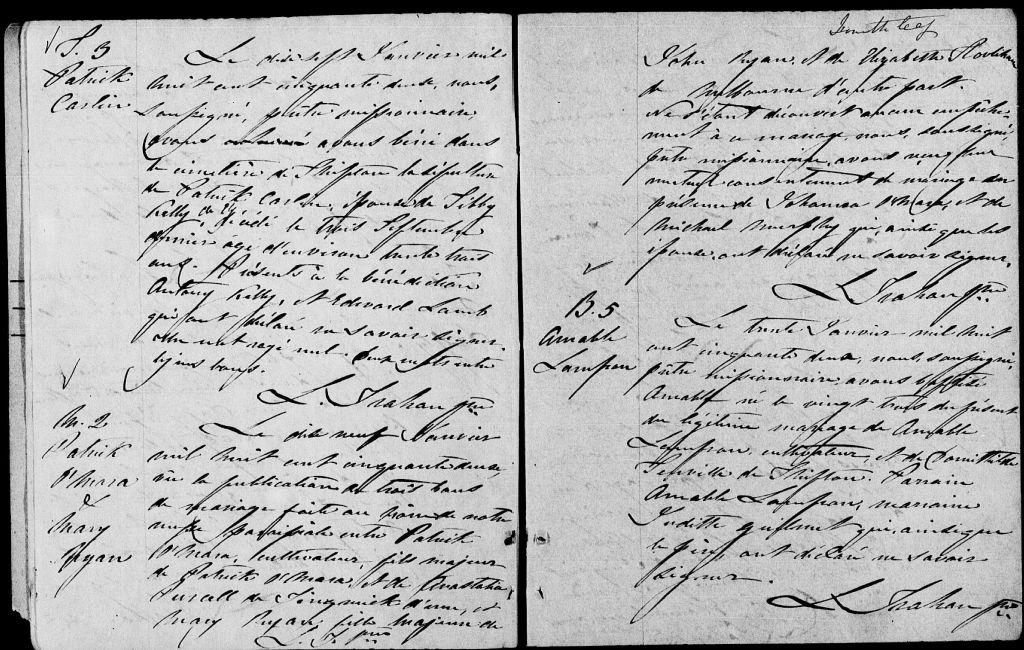 S. 3
Patrick
Carlin
Le dix sept Janvier mil
huit cent cinquante deux, nous,
soussigné, prêtre missionnaire
avons inhumé avons béni dans
le cimetière de Shipton la sépulture
de Patrick Carlin, époux de Sibby
Kelly décédé le trois Septembre
dernier agé d'environ trente trois
ans. Présents à la bénédiction
Antony Kelly, et Edward Lamb
qui ont déclaré ne savoir signer.
un mot rayé nul.
bons.
L. Trahan ptre
M. 2
Patrick
O'Mara
&
Mary
Ryan
Le dix neuf Janvier
mil huit cent cinquante deux,
vu la publication de trois bans
de mariage faite au prône de notre
messe paroissiale entre Patrick
O'Mara, cultivateur, fils majeur
de Patrick O'Mara et de Anastasia
Purcell de Tingwick d'une, et
Mary Ryan, fille majeure de
L. T. ptre
feuillet
John Ryan et de Elizabeth
de Melbourne d'autre part.
Ne s'étant découvert aucun empêche-
ment à ce mariage, nous, soussigné,
prêtre missionnaire, avons reçu leur
mutuel consentement de mariage en
présence de Johanna O'Mara, et de
Michael Murphy qui, ainsi que les
époux, ont déclaré ne savoir signer.
L Trahan ptre
B. 5
Amable
Lampron
Le trente Janvier mil huit
cent cinquante deux, nous, soussigné,
prêtre missionnaire avons baptisé
Amable né le vingt trois du présent
du légitime mariage de Amable
Lampron, cultivateur, et de Domithilde
de Shipton. Parrain
Amable Lampron, marraine
Judith qui, ainsi que
le père ont déclaré ne savoir
signer.
L Trahan ptre